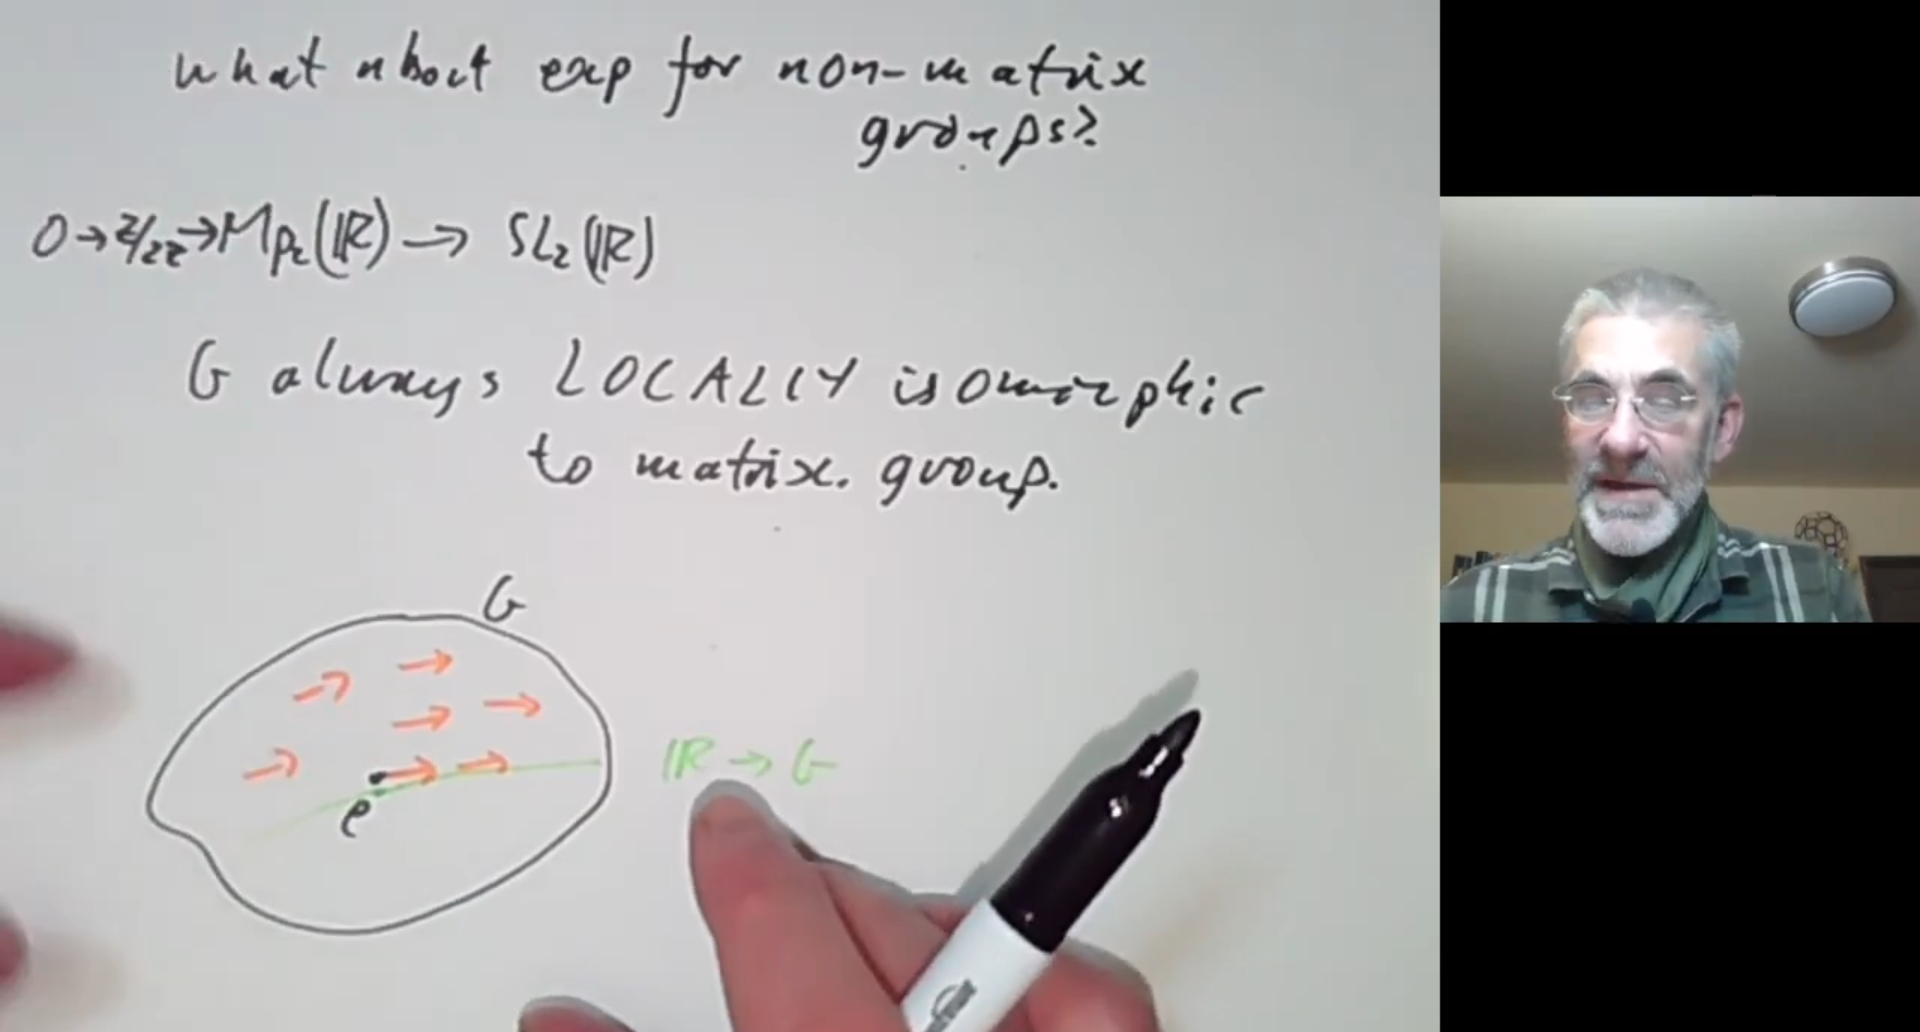 what about exp for non-matrix
groups?
0→Z/2Z→Mp₂(ℝ)→ SL₂(ℝ)
G always LOCALLY isomorphic
to matrix. group.
G
e
ℝ → G